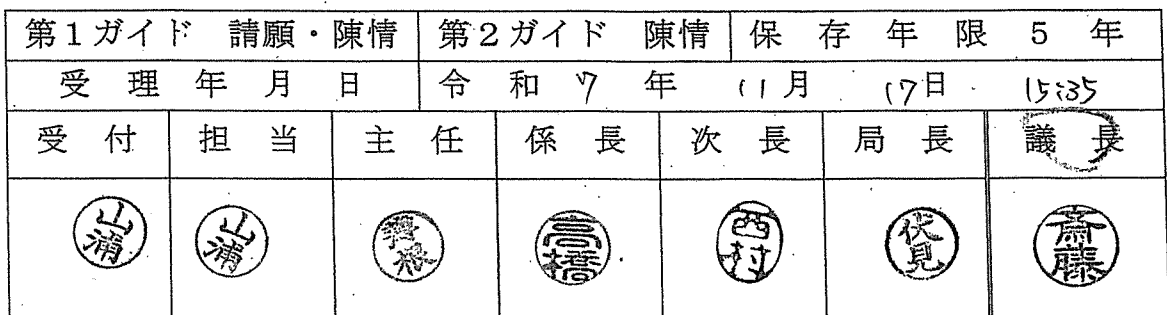 第1ガイド 請願・陳情 第2ガイド 陳情 保存年限 5年
受理年月日 令和7年 11月 17日 15:35
受付 担当 主任 係長 次長 局長 議長
山浦 山浦 高橋 西村 伏見 斎藤